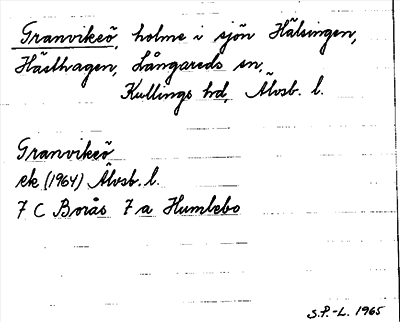 Granvikeö, holme i sjön Hälsingen,
Hästhagen, Långareds sn,
Kullings hd, Älvsb. l.
Granvikeö
ek (1964) Älvsb. l.
7 C Borås 7 a Humlebo
S.P.-L. 1965